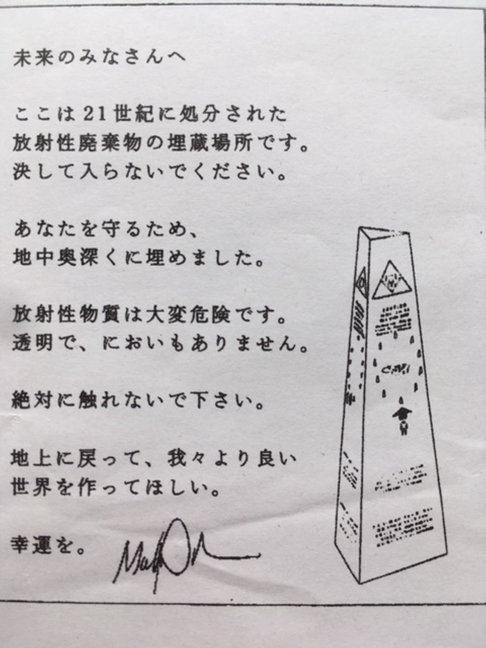 未来のみなさんへ
ここは21世紀に処分された
放射性廃棄物の埋蔵場所です。
決して入らないでください。
あなたを守るため、
地中奥深くに埋めました。
放射性物質は大変危険です。
透明で、においもありません。
絶対に触れないで下さい。
地上に戻って、我々より良い
世界を作ってほしい。
幸運を。